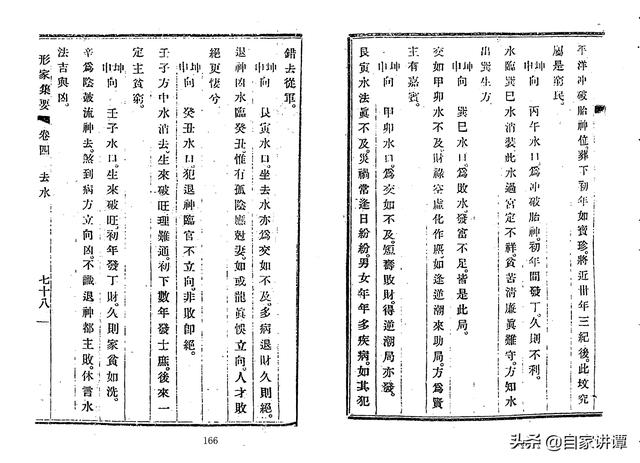 平洋冲破胎神位。葬下初年如寶珍。將近卅年三紀後。此墳究
屬是窮民。
坤申向　丙午水口。爲冲破胎神。初年間發丁。久則不利。
水臨巽巳水消裝。此水過宮定不祥。貧苦清廉眞難守。方知水
出巽生方。
坤申向　巽巳水口。爲敗水發富不足。皆是此局。
交如甲卯水不及。財祿空虛化作塵。如逢逆潮來助局。方爲賓
主有嘉賓。
坤申向　甲卯水口。爲交如不及。短壽敗財。得逆潮局亦發。
艮寅水法眞不及。災禍常逢日紛紛。男女年年多疾病。如其犯
錯去從軍。
坤申向　艮寅水口。坐去水亦爲交如不及。多病退財久則絕。
退神凶水臨癸丑。惟有孤陰應尅妻。如或龍眞悞立向。人才敗
絕更悽兮。
坤申向　癸丑水口。犯退神臨官不立向。非敗卽絕。
壬子方中水消去。生來破旺理難通。初下數年發士庶。後來一
定主貧窮。
坤申向　壬子水口。生來破旺。初年發丁財。久則家貧如洗。
辛爲陰皷流神去。煞到病方立向凶。不識退神都主敗。休言水
法吉與凶。
形家集要　卷四　去水　七十八
166
头条 @自家讲谭